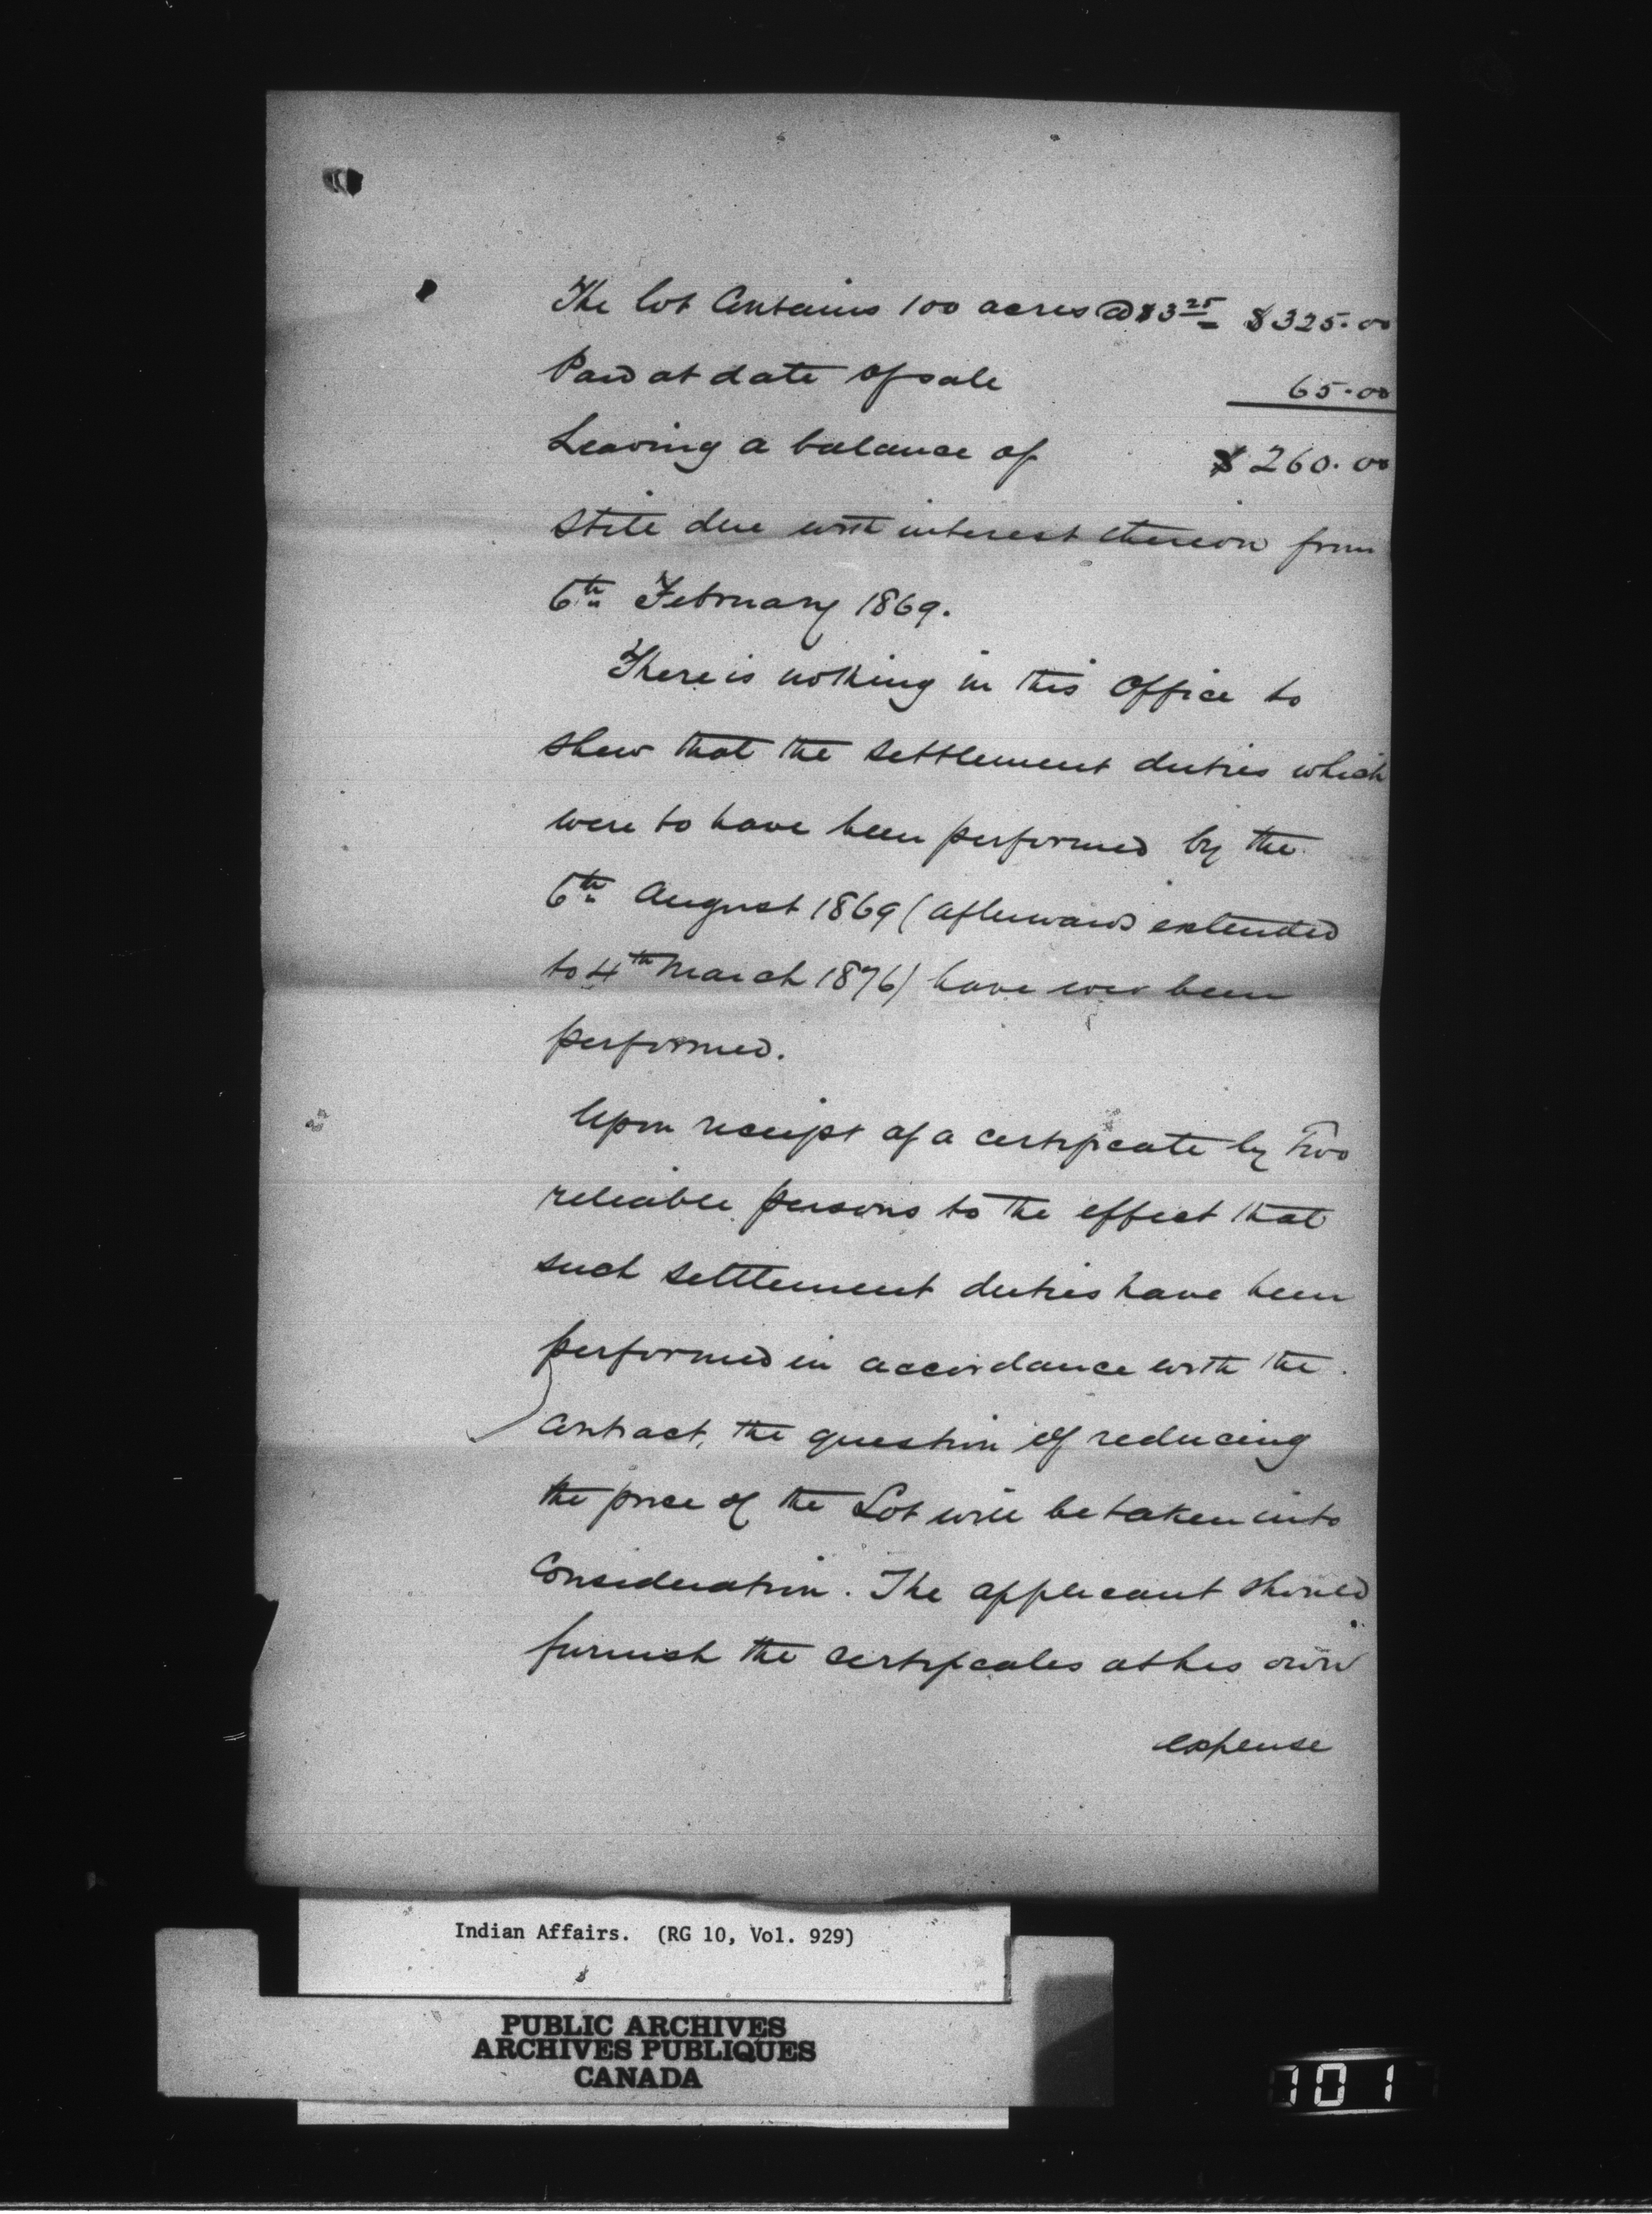 The lot Contains 100 acres @ $3 25 $325.00
Paid at date of sale 65.00
Leaving a balance of $260.00
still due with interest thereon from
6th February 1869.
There is nothing in this Office to
shew that the settlement duties which
were to have been performed by the
6th August 1869 (afterwards extended
to 4th March 1876) have ever been
performed.
Upon receipt of a certificate by Two
reliable persons to the effect that
such settlement duties have been
performed in accordance with the
Contract, the question of reducing
the price of the Lot will be taken into
Consideration. The applicant should
furnish the certificates at his own
expense
Indian Affairs. (RG 10, Vol. 929)
PUBLIC ARCHIVES
ARCHIVES PUBLIQUES
CANADA
101